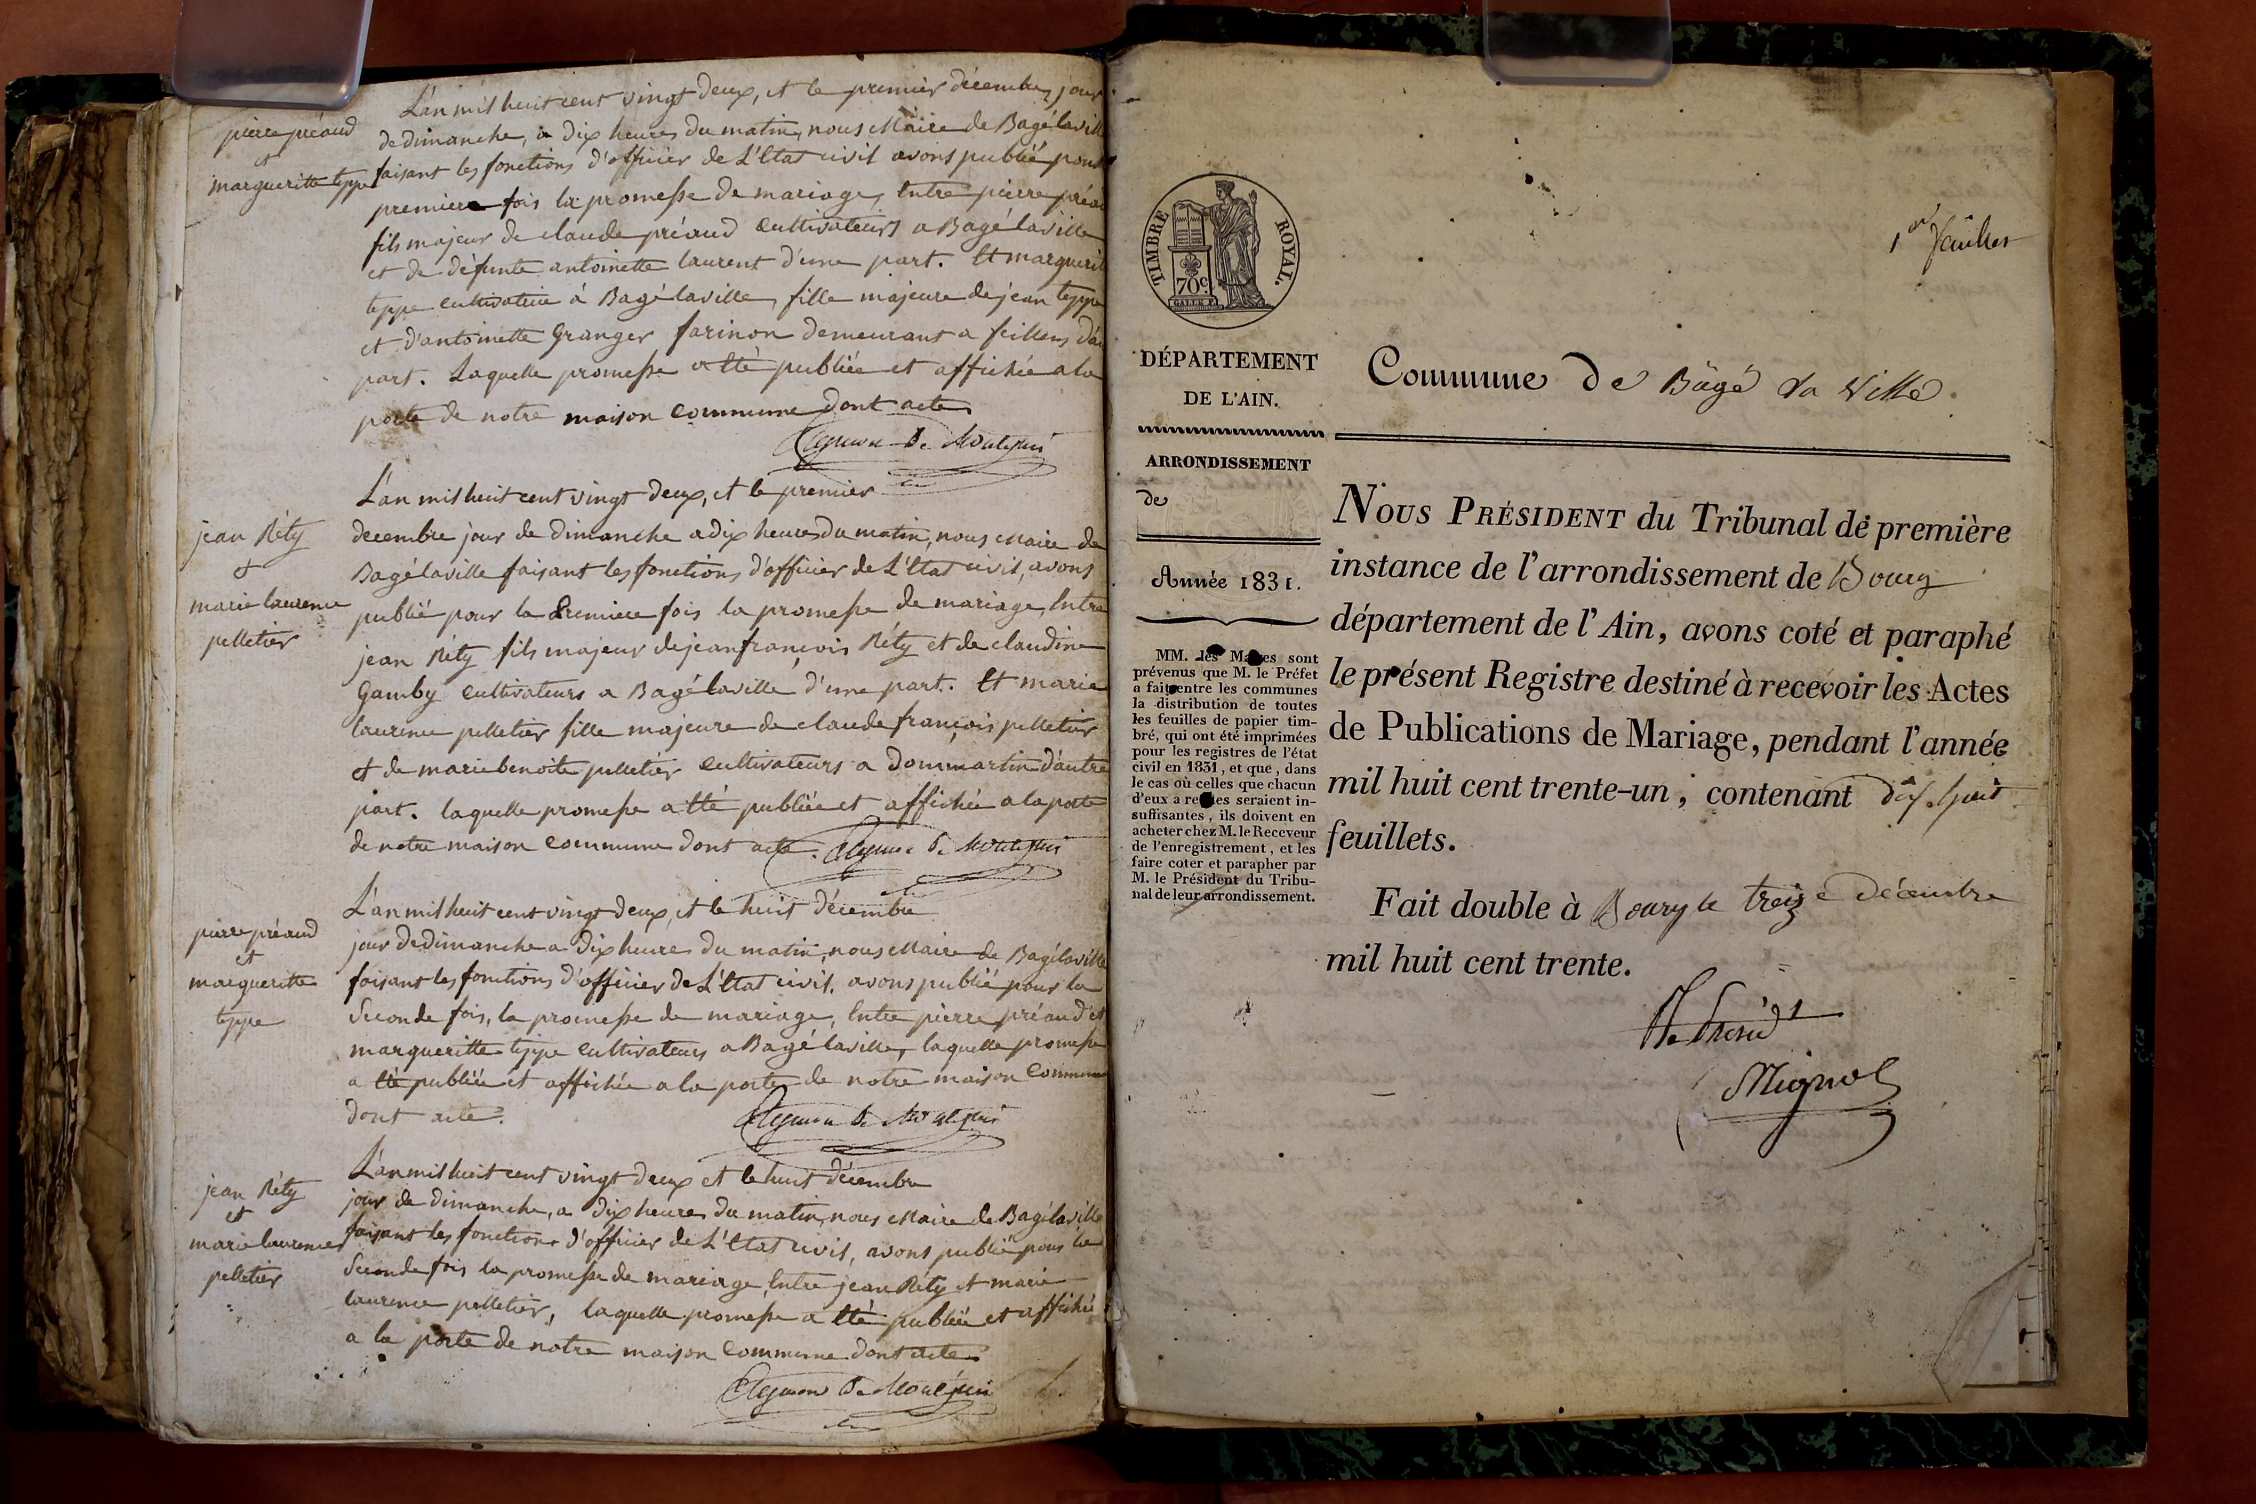 pierre préaud
et
margueritte teppe
L'an mil huit cent vingt deux, et le premier décembre, jour
de dimanche, a dix heures du matin, nous Maire de Bagélaville
faisant les fonctions d'officier de L'Etat civil avons publié pour
premiere fois la promesse de mariage, Entre pierre préau
fils majeur de claude préaud cultivateurs a Bagélaville
et de défunte antoinette laurent d'une part. Et marguerit
teppe cultivatrice à Bagélaville, fille majeure de jean teppe
et d'antoinette Granger farinon demeurant a feillens d'au
part. Laquelle promesse a Eté publiée et affichée a la
porte de notre maison commune dont acte
jean Réty
et
marie laurence
pelletier
L'an mil huit cent vingt deux, et le premier
decembre jour de dimanche a dix heures du matin, nous Maire de
Bagélaville faisant les fonctions d'officier de L'Etat civil, avons
publié pour la Premiere fois la promesse de mariage, Entre
jean Réty fils majeur de jean françois Réty et de claudine
Gamby cultivateurs a Bagélaville d'une part. Et marie
laurence pelletier fille majeure de claude françois pelletier
et de marie benoite pelletier cultivateurs a dommartin d'autre
part. laquelle promesse a Eté publiée et affichée a la porte
de notre maison commune dont acte.
pierre préaud
et
margueritte
teppe
L'an mil huit cent vingt deux, et le huit décembre
jour de dimanche a dix heures du matin, nous Maire de Bagélaville
faisant les fonctions d'officier de L'Etat civil. avons publié pour la
Seconde fois, la promesse de mariage, Entre pierre préaud et
margueritte teppe cultivateurs a Bagélaville, laquelle promesse
a Eté publiée et affichée a la porte de notre maison commune
dont acte.
jean Réty
et
marie laurence
pelletier
L'an mil huit cent vingt deux et le huit décembre
jour de dimanche, a dix heures du matin, nous Maire de Bagélaville
faisant les fonctions d'officier de L'Etat civil, avons publié pour la
Seconde fois la promesse de mariage, Entre jean Réty et marie
laurence pelletier, laquelle promesse a Eté publiée et affichée
a la porte de notre maison commune dont acte
1er feuillet
TIMBRE ROYAL.
70c.
GALLE F.
DÉPARTEMENT
DE L'AIN.
ARRONDISSEMENT
de
Année 1831.
MM. les Maires sont
prévenus que M. le Préfet
a fait entre les communes
la distribution de toutes
les feuilles de papier tim-
bré, qui ont été imprimées
pour les registres de l'état
civil en 1831, et que, dans
le cas où celles que chacun
d'eux a reçues seraient in-
suffisantes, ils doivent en
acheter chez M. le Receveur
de l'enregistrement, et les
faire coter et parapher par
M. le Président du Tribu-
nal de leur arrondissement.
Commune de Bâgé La Ville
NOUS PRÉSIDENT du Tribunal de première
instance de l'arrondissement de Bourg
département de l'Ain, avons coté et paraphé
le présent Registre destiné à recevoir les Actes
de Publications de Mariage, pendant l'année
mil huit cent trente-un, contenant dix huit
feuillets.
Fait double à Bourg le treize décembre
mil huit cent trente.